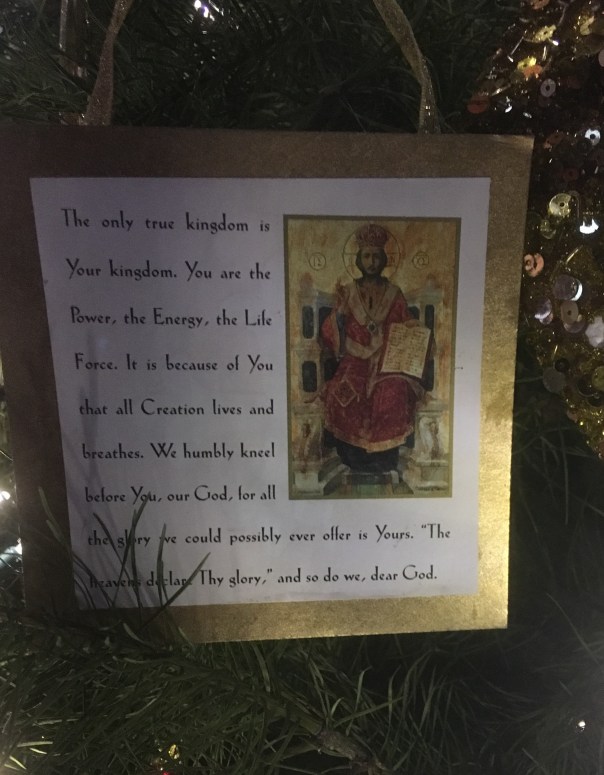 The only true kingdom is
Your kingdom. You are the
Power, the Energy, the Life
Force. It is because of You
that all Creation lives and
breathes. We humbly kneel
before You, our God, for all
the glory we could possibly ever offer is Yours. "The
heavens declare Thy glory," and so do we, dear God.